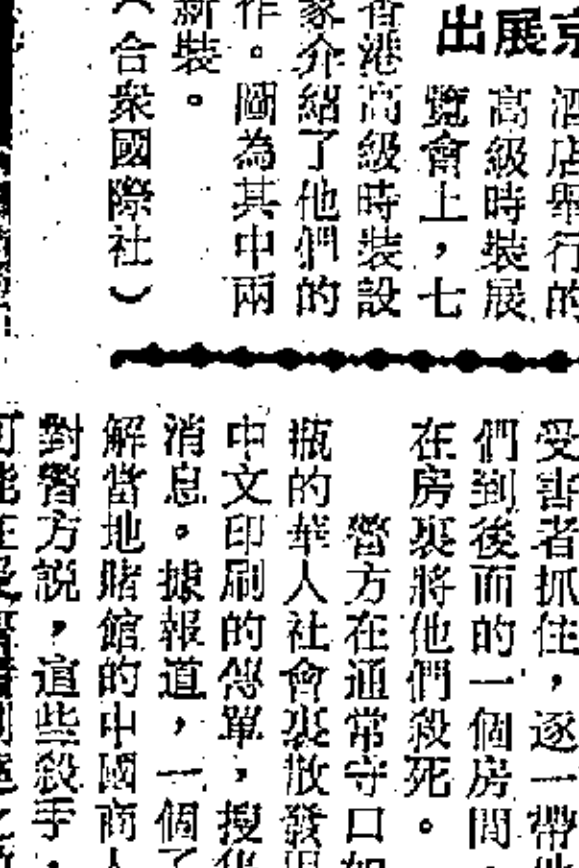 出展京
酒店舉行的
高級時裝展
覽會上，七
香港高級時裝設
家介紹了他們的
作。圖為其中兩
新裝。
（合衆國際社）
受害者抓住，逐一帶
們到後面的一個房間
在房裏將他們殺死。
警方在通常守口如
瓶的華人社會裏散發
中文印刷的傳單，搜
消息。據報道，一個
解當地賭館的中國商
對警方說，這些殺手